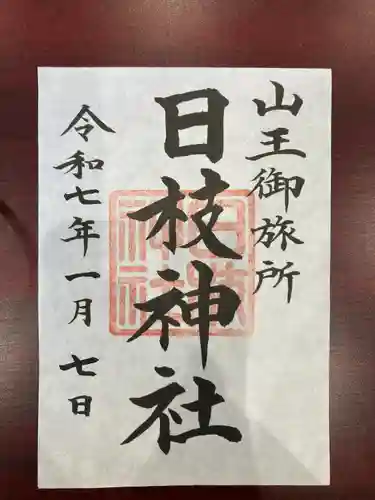 山王御旅所
日枝神社
令和七年一月七日
日枝神社